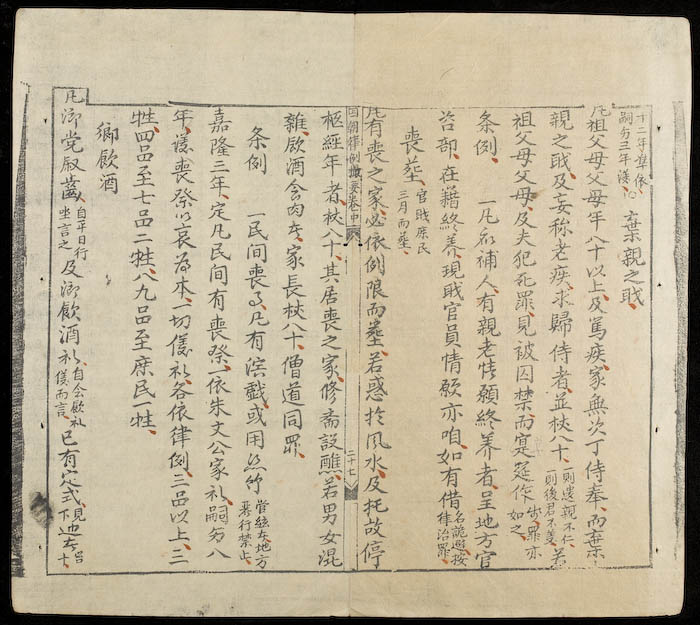 十二年準依
嗣𠃣三年議□ 棄親之戝
凡祖父母父母年八十以上及篤疾家無次丁侍奉而棄
親之戝及妄称老疾求歸侍者並杖八十 一則遺親不仁 一則後君不義 若
祖父母父母及夫犯死罪見被囚禁而筵宴作 亦罪亦如之
条例 一凡候補人有親老情願終养者呈地方官
咨部在藉終养現戝官員情愿亦咱如有借 名詭避按律治罪
喪塟 官戝庶民三月而塟
凡有喪之家必依例限而塟若惑扵風水及托故停
國朝律例撮要卷中 二十七
柩經年者杖八十其居喪之家修斋設醮若男女混
雜飲酒食肉者家長杖八十僧道同罪
条例 一民间喪事凡有演戲或用絲竹 管絃在地方嚴行禁止
嘉隆三年定凡民间有喪祭一依朱文公家礼嗣𠃣八
年議喪祭以哀為本一切儀礼各依律例三品以上三
牲四品至七品二牲八九品至庶民一牲
鄉飲酒
凡鄉党叙齒 自平日行坐言之 及鄉飲酒礼 自会飲礼儀而言 已有定式